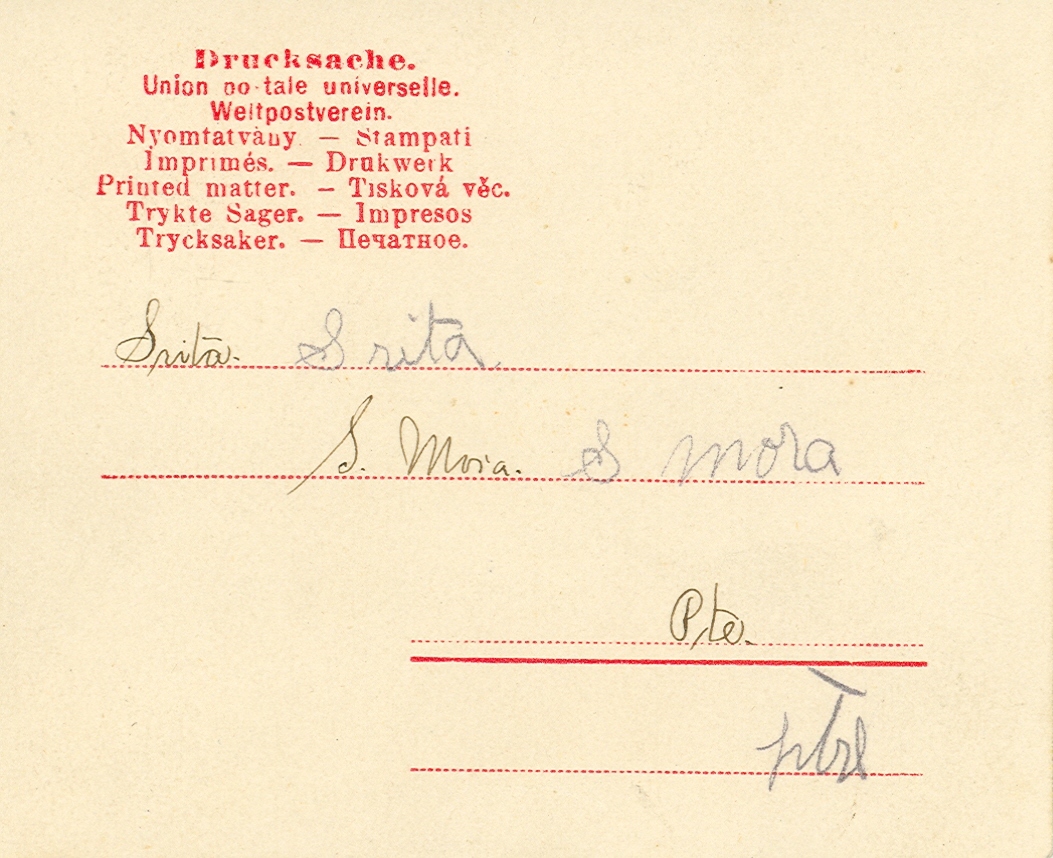 Drucksache.
Union po tale universelle.
Weltpostverein.
Nyomtatvány — Stampati
Imprimés. — Drukwerk
Printed matter. — Tisková věc.
Trykte Sager. — Impresos
Trycksaker. — Печатное.
Srita. Srita
S. Mora. S mora
Pte.